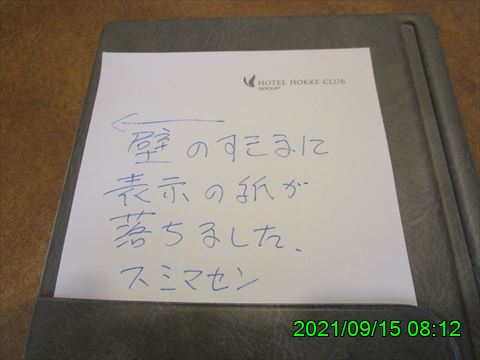 HOTEL HOKKE CLUB
GROUP
←
壁のすきまに
表示の紙が
落ちました、
スミマセン
2021/09/15 08:12